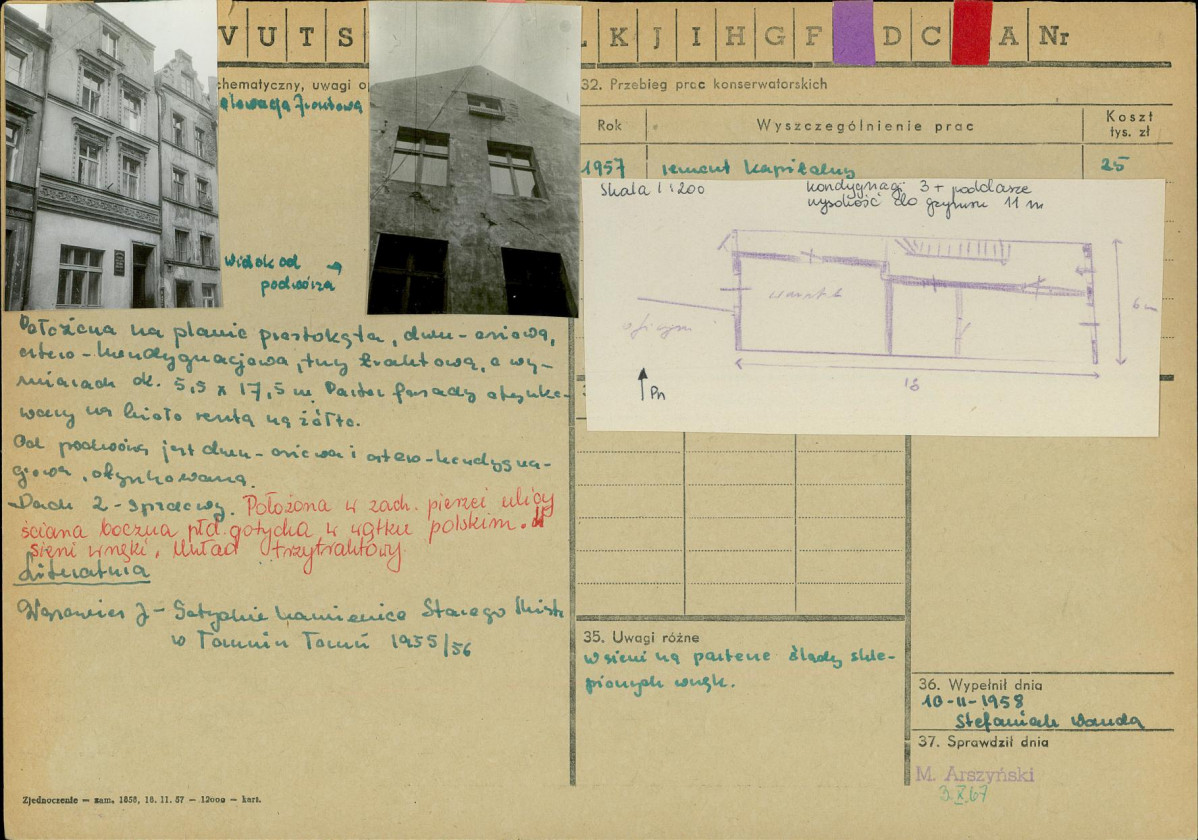 V U T S L K J I H G F D C A Nr
chematyczny, uwagi o
elewacja frontowa
widok od →
podwórza
Położona na planie prostokąta, dwu-osiowa,
cztero-kondygnacjowa, trzy traktowa, o wy-
miarach ok. 5,5 x 17,5 m. Parter fasady otynko-
wany na biało reszta na żółto.
Od podwórza jest dwu-osiowa i cztero-kondygna-
cjowa, otynkowana.
Dach 2-spadowy. Położona w zach. pierzei ulicy
ściana boczna płd. gotycka w wątku polskim. W
sieni wnęki. Układ trzytraktowy
Literatura
Wąsowicz J - Gotyckie kamienice Starego Miasta
w Toruniu Toruń 1955/56
32. Przebieg prac konserwatorskich
Rok Wyszczególnienie prac Koszt
tys. zł
1957 remont kapitalny 25
Skala 1:200
kondygnacji 3 + poddasze
wysokość do gzymsu 11 m
warsztat
oficyna
6 m
16
Pn
35. Uwagi różne
w sieni na parterze ślady skle-
pionych wnęk.
36. Wypełnił dnia
10-II-1958
Stefaniak Wanda
37. Sprawdził dnia
M. Arszyński
3.X.67
Zjednoczenie — zam. 1858, 18. 11. 57 — 12000 — kart.